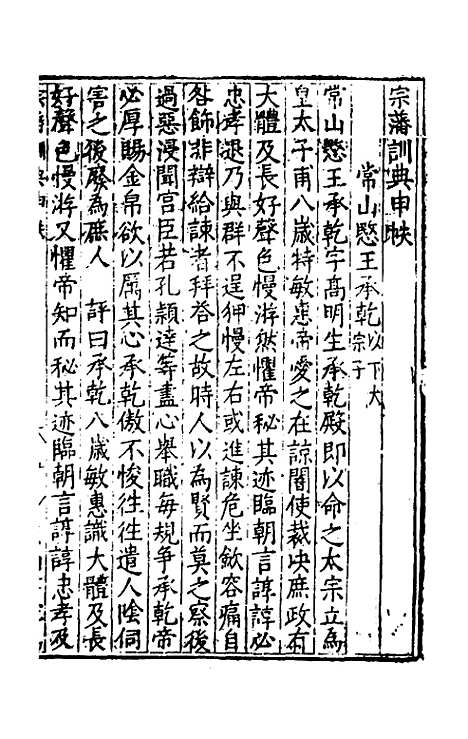 宗藩訓典申帙
常山愍王承乾以下大宗子
常山愍王承乾字髙明生承乾殿即以命之太宗立為
皇太子甫八歲特敏惠帝愛之在諒闇使裁决庶政有
大體及長好聲色慢游然懼帝秘其迹臨朝言諄諄必
忠孝退乃與群不逞狎慢左右或進諫危坐斂容痛自
咎飾非辯給諫者拜答之故時人以為賢而莫之察後
過惡浸聞宫臣若孔穎達等盡心舉職毎規争承乾帝
必厚賜金帛欲以厲其心承乾傲不悛徃徃遣人陰伺
害之後廢為庶人　評曰承乾八歲敏惠識大體及長
好聲色慢游又懼帝知而秘其迹臨朝言諄諄忠孝及